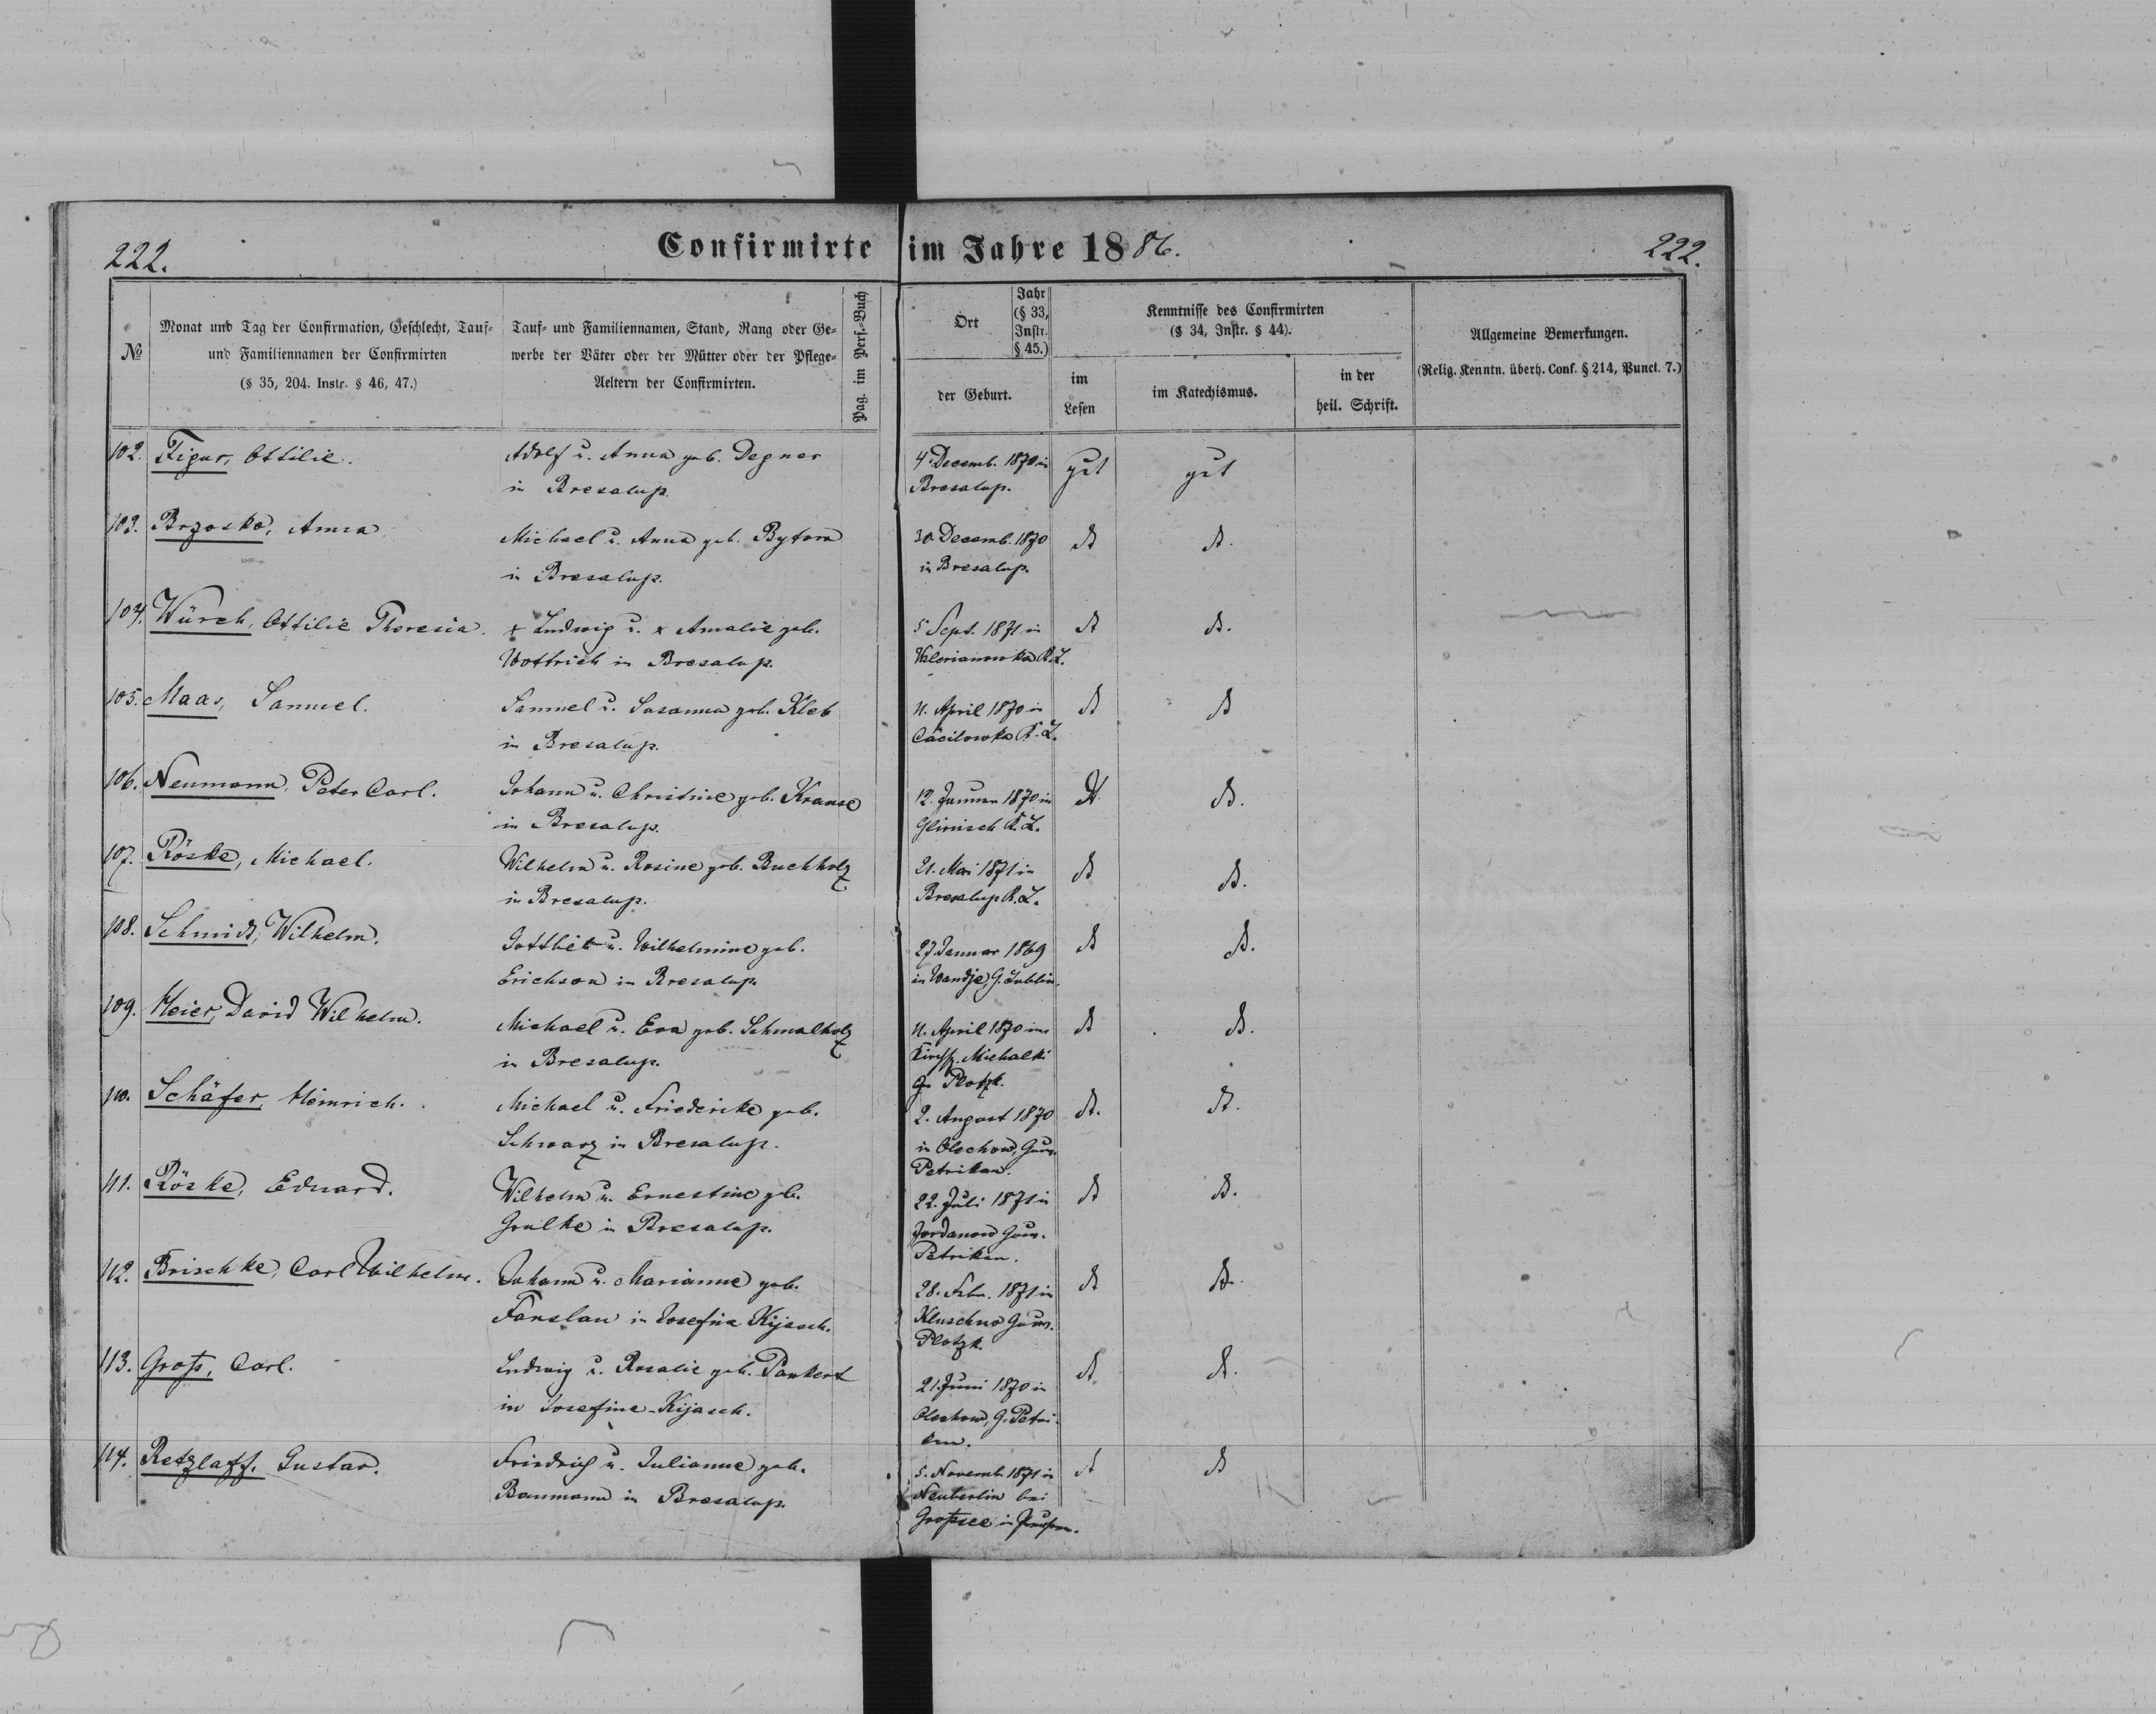 222.
Confirmirte im Jahre 1886.
222.
№
Monat und Tag der Confirmation, Geschlecht, Tauf-
und Familiennamen der Confirmirten
(§ 35, 204. Instr. § 46, 47.)
Tauf- und Familiennamen, Stand, Rang oder Ge-
werbe der Väter oder der Mütter oder der Pflege-
Aeltern der Confirmirten.
Pag. im Pers.-Buch
Ort
Jahr
(§ 33,
Instr.
§ 45.)
der Geburt.
Kenntnisse des Confirmirten
(§ 34, Instr. § 44).
im
Lesen
im Katechismus.
in der
heil. Schrift.
Allgemeine Bemerkungen.
(Relig. Kenntn. überh. Conf. § 214, Punct. 7.)
102. Figur, Ottilie.
Adolf u. Anna geb. Degner
in Bresalup.
4. Decemb. 1870 in
Bresalup.
gut
gut
103. Brzosko, Anna
Michael u. Anna geb. Bytom
in Bresalup.
30. Decemb. 1870
in Bresalup.
dt
dt.
104. Würch, Ottilie Theresia.
+ Ludwig u. + Amalie geb.
Wottrich in Bresalup.
5 Sept. 1871 in
Valerianowka K. L.
dt
dt.
105. Maas, Samuel.
Samuel u. Susanna geb. Kleb
in Bresalup.
11. April 1870 in
Cäcilowka K. L.
dt
dt
106. Neumann, Peter Carl.
Johann u. Christine geb. Krause
in Bresalup.
12. Januar 1870 in
Glinisch K. L.
dt.
dt.
107. Röske, Michael.
Wilhelm u. Rosine geb. Buchholz
in Bresalup.
21. Mai 1871 in
Bresalup K. L.
dt
dt.
108. Schmidt, Wilhelm.
Gottlieb u. Wilhelmine geb.
Erichson in Bresalup.
27 Januar 1869
in Wandje, G. Lublin.
dt
dt.
109. Meier, David Wilhelm.
Michael u. Eva geb. Schmalholz
in Bresalup.
11. April 1870 im
Kirchsp. Michalki
G. Plotzk.
dt
dt.
110. Schäfer, Heinrich.
Michael u. Friederike geb.
Schwarz in Bresalup.
2. August 1870
in Olechow, Guv.
Petrikau.
dt.
dt.
111. Röske, Eduard.
Wilhelm u. Ernestine geb.
Grulke in Bresalup.
22. Juli 1871 in
Jordanow Guv.
Petrikau.
dt
dt.
112. Brischke, Carl Wilhelm.
Johann u. Marianne geb.
Fanslau in Josefine Kijasch.
28. Febr. 1871 in
Kluschno Guv.
Plotzk.
dt
dt.
113. Groß, Carl.
Ludwig u. Rosalie geb. Pankert
in Josefine-Kijasch.
21. Juni 1870 in
Olechow, G. Petri-
kau.
dt
dt.
114. Retzlaff, Gustav.
Friedrich u. Julianne geb.
Baumann in Bresalup.
5. Novemb. 1871 in
Neuberlin bei
Großsee in
dt
dt